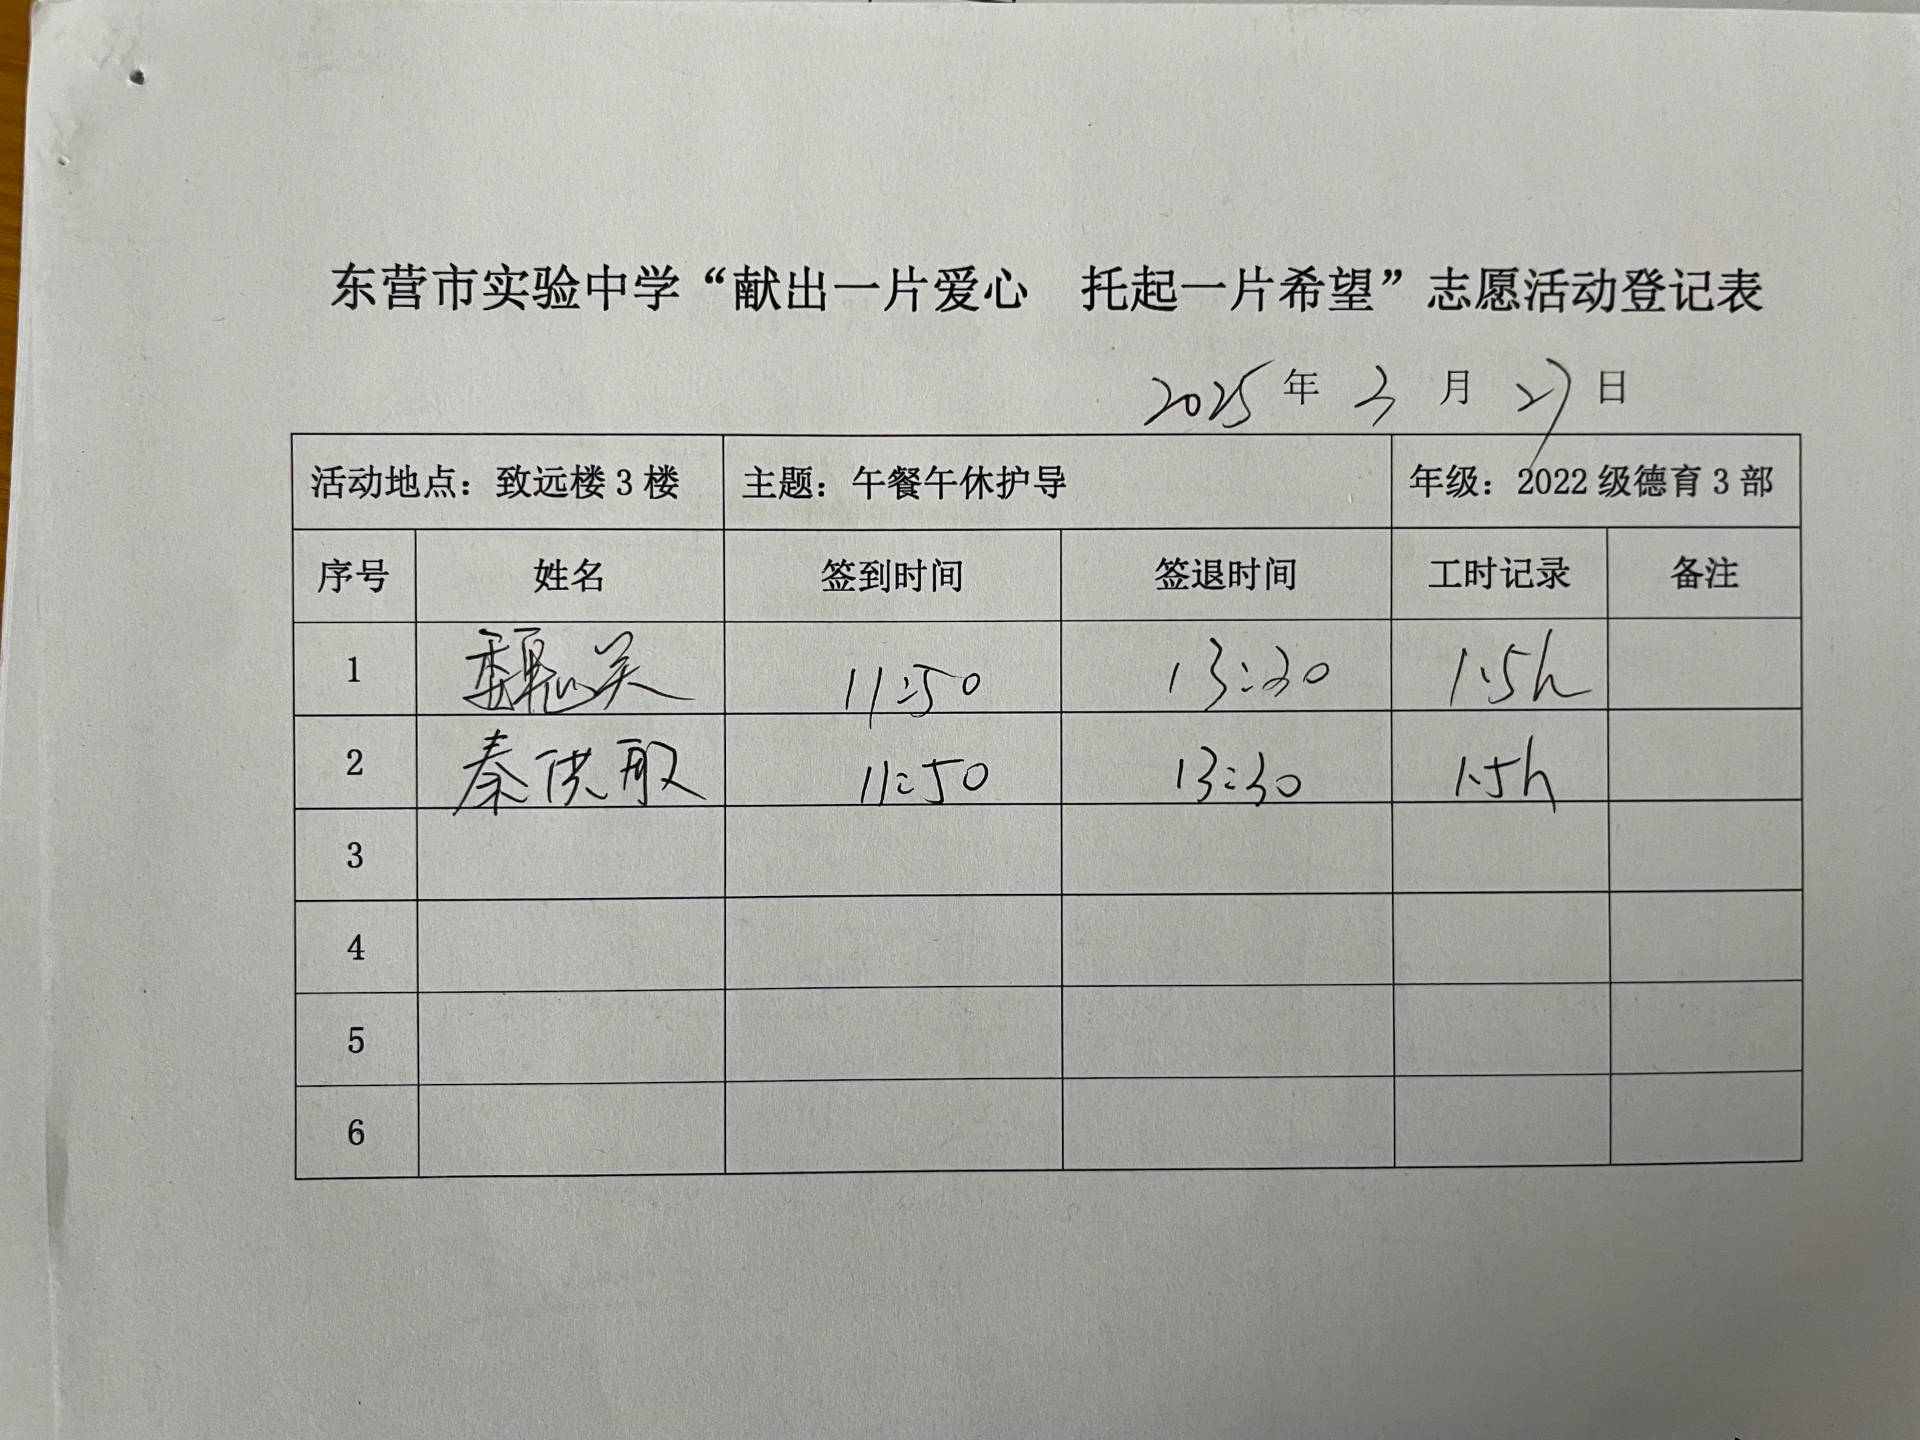 东营市实验中学“献出一片爱心 托起一片希望”志愿活动登记表
2025年3月27日
活动地点：致远楼3楼 主题：午餐午休护导 年级：2022级德育3部
序号 姓名 签到时间 签退时间 工时记录 备注
1 魏 11:50 13:30 1.5h
2 秦洪 11:50 13:30 1.5h
3
4
5
6